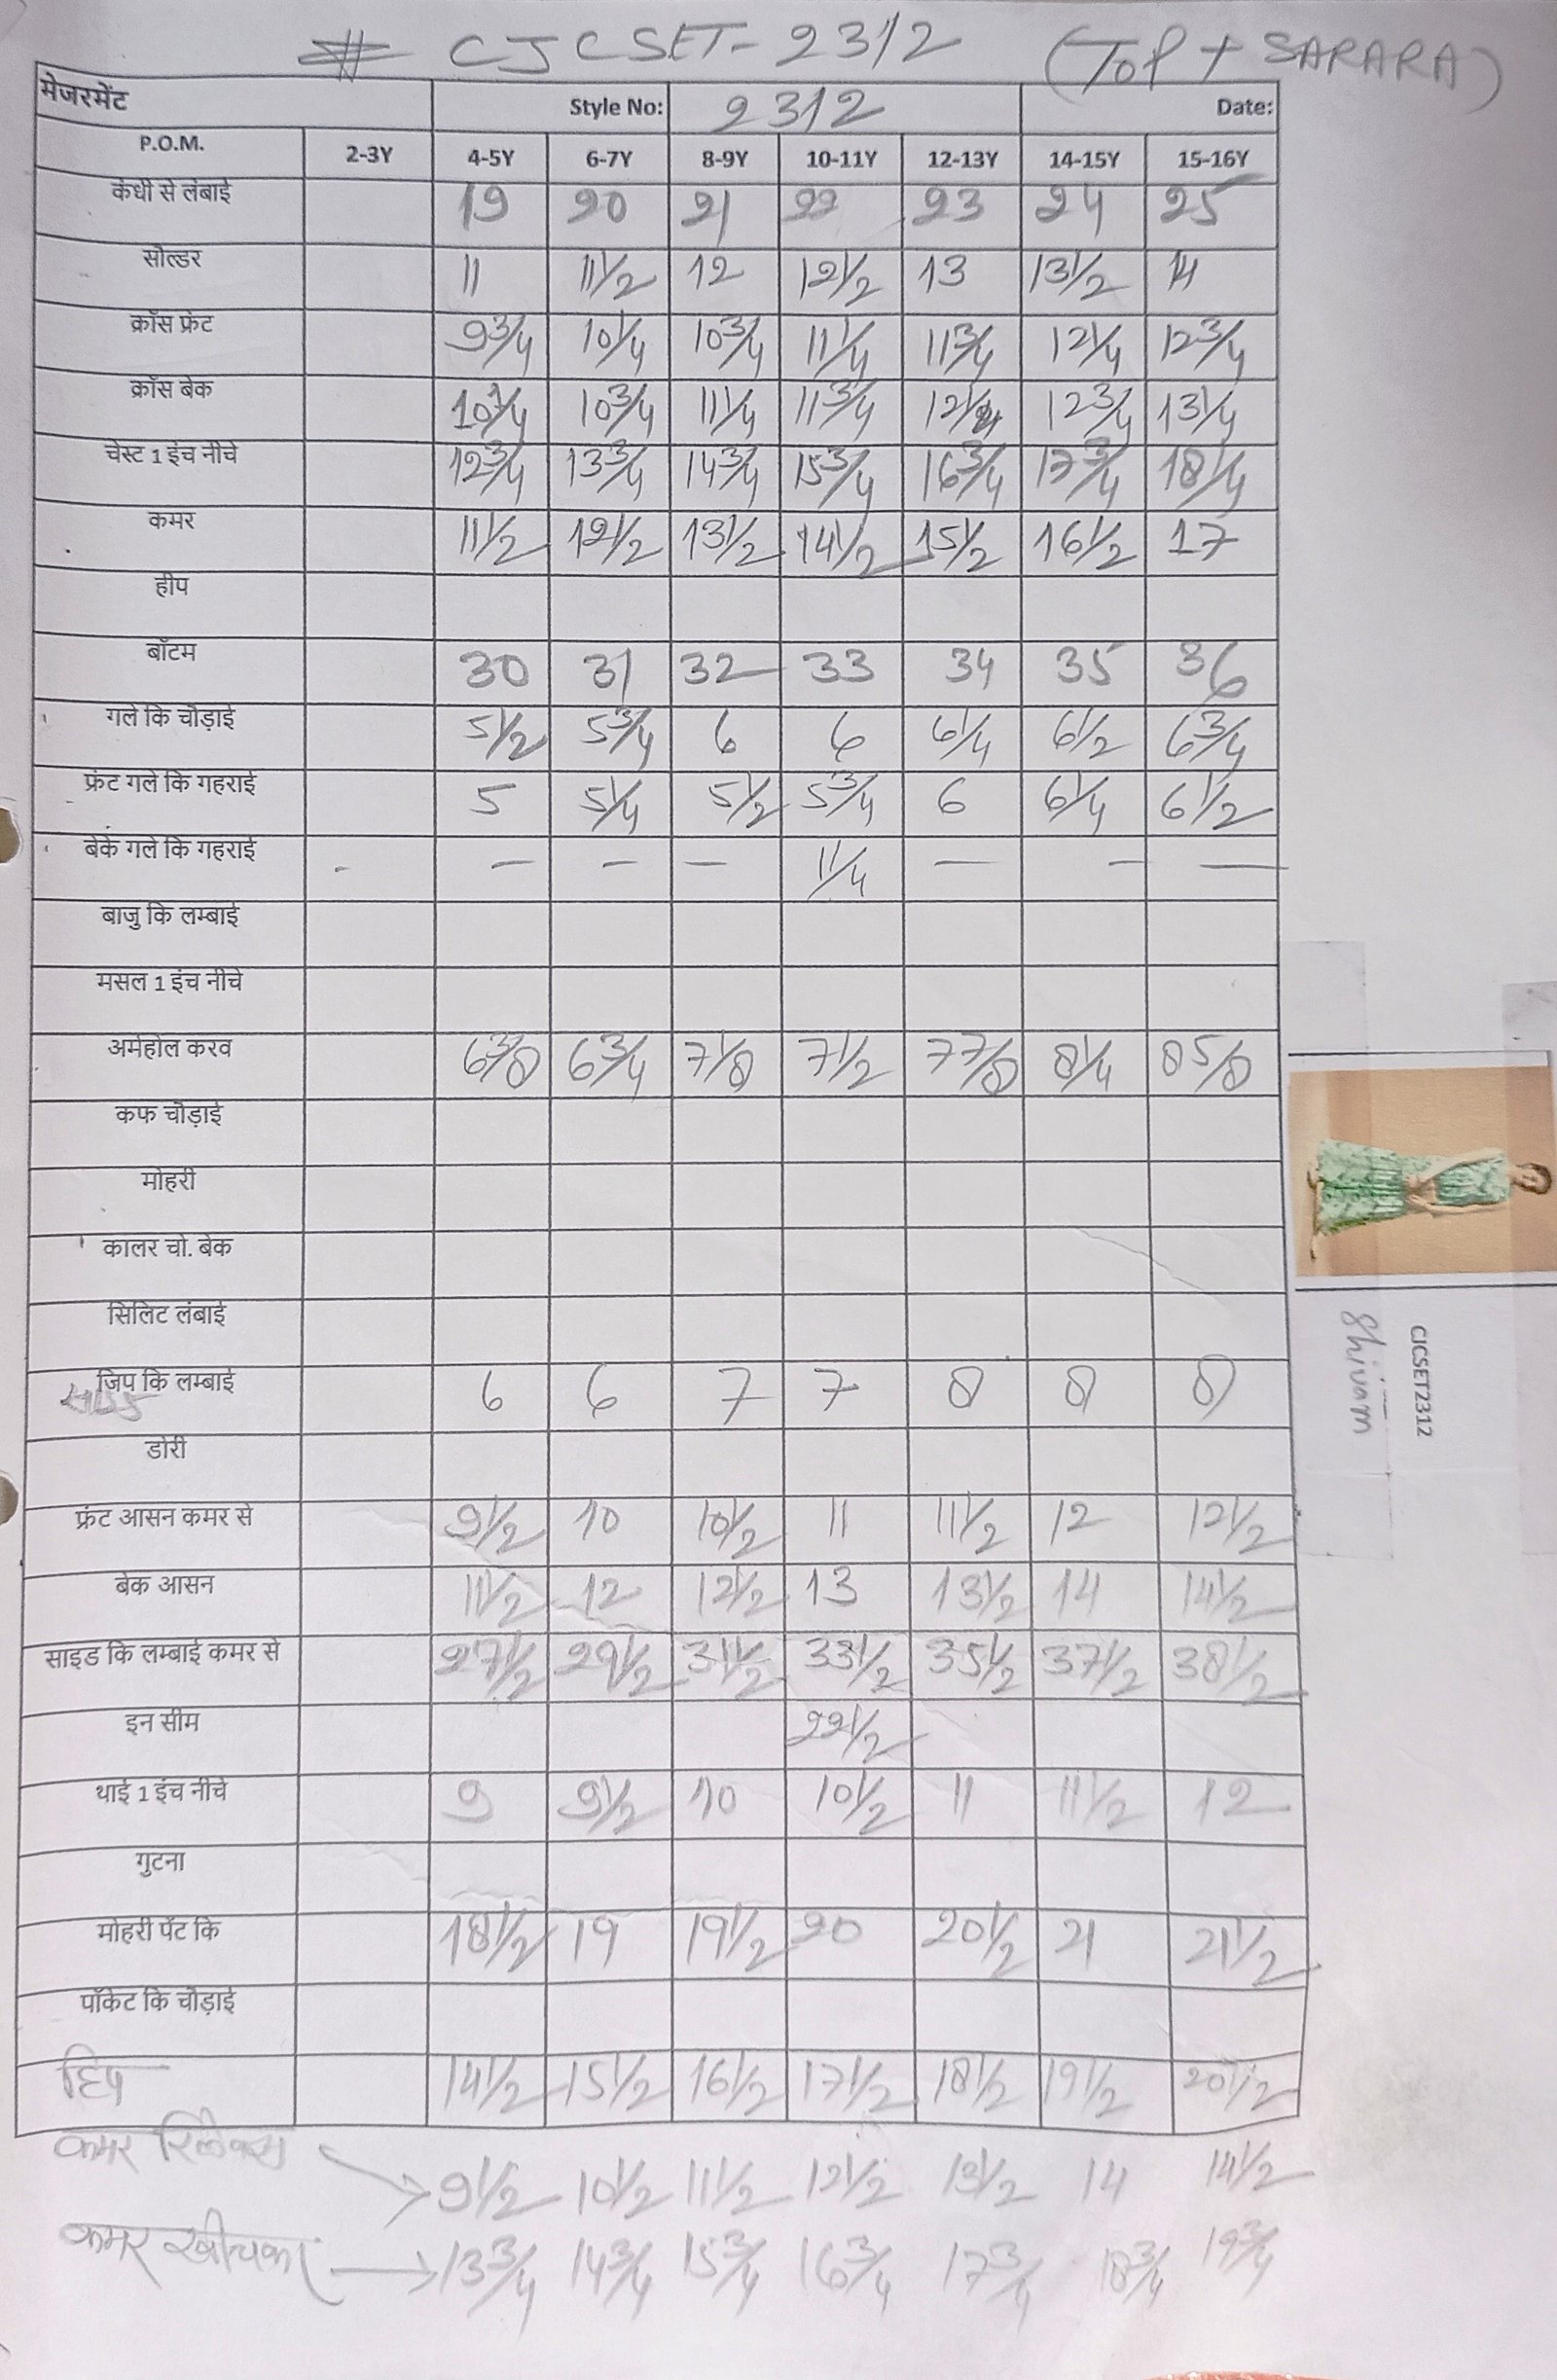 # CJCSET-2312 (TOP + SARARA)
मेजरमेंट Style No: 2312 Date:
P.O.M. 2-3Y 4-5Y 6-7Y 8-9Y 10-11Y 12-13Y 14-15Y 15-16Y
कंधी से लंबाई 19 20 21 22 23 24 25
सोल्डर 11 11 1/2 12 12 1/2 13 13 1/2 14
क्रॉस फ्रंट 9 3/4 10 1/4 10 3/4 11 1/4 11 3/4 12 1/4 12 3/4
क्रॉस बेक 10 1/4 10 3/4 11 1/4 11 3/4 12 1/4 12 3/4 13 1/4
चेस्ट 1 इंच नीचे 12 3/4 13 3/4 14 3/4 15 3/4 16 3/4 17 3/4 18 1/4
कमर 11 1/2 12 1/2 13 1/2 14 1/2 15 1/2 16 1/2 17
हीप
बॉटम 30 31 32 33 34 35 36
गले कि चौड़ाई 5 1/2 5 3/4 6 6 6 1/4 6 1/2 6 3/4
फ्रंट गले कि गहराई 5 5 1/4 5 1/2 5 3/4 6 6 1/4 6 1/2
बेके गले कि गहराई - — — — 1 1/4 — — —
बाजु कि लम्बाई
मसल 1 इंच नीचे
अर्महोल करव 6 3/8 6 3/4 7 1/8 7 1/2 7 7/8 8 1/4 8 5/8
कफ चौड़ाई
मोहरी
कालर चो. बेक
सिलिट लंबाई
जिप कि लम्बाई 6 6 7 7 8 8 8
डोरी
फ्रंट आसन कमर से 9 1/2 10 10 1/2 11 11 1/2 12 12 1/2
बेक आसन 11 1/2 12 12 1/2 13 13 1/2 14 14 1/2
साइड कि लम्बाई कमर से 27 1/2 29 1/2 31 1/2 33 1/2 35 1/2 37 1/2 38 1/2
इन सीम 22 1/2
थाई 1 इंच नीचे 9 9 1/2 10 10 1/2 11 11 1/2 12
गुटना
मोहरी पेंट कि 18 1/2 19 19 1/2 20 20 1/2 21 21 1/2
पॉकेट कि चौड़ाई
हिप 14 1/2 15 1/2 16 1/2 17 1/2 18 1/2 19 1/2 20 1/2
कमर रिलेक्स → 9 1/2 10 1/2 11 1/2 12 1/2 13 1/2 14 14 1/2
कमर खीचकर → 13 3/4 14 3/4 15 3/4 16 3/4 17 3/4 18 3/4 19 3/4
CJCSET2312
Shivam